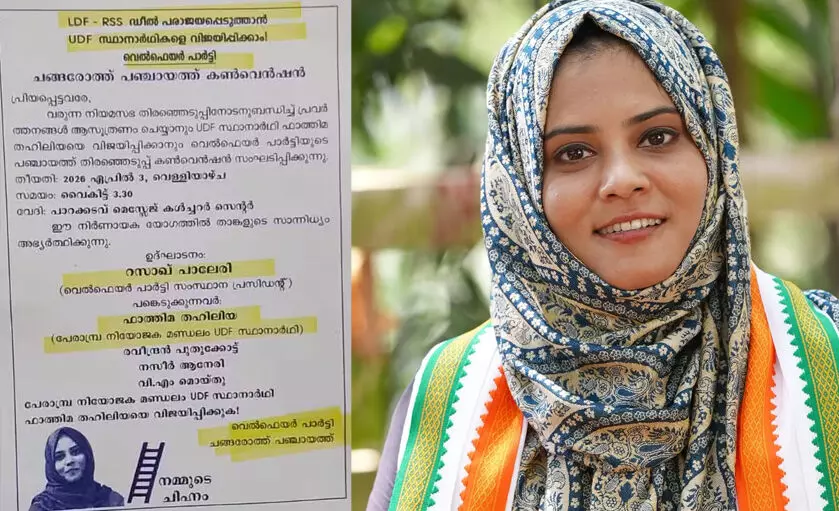 LDF - RSS ഡീൽ പരാജയപ്പെടുത്താൻ
UDF സ്ഥാനാർഥികളെ വിജയിപ്പിക്കാം!
വെൽഫെയർ പാർട്ടി
ചങ്ങരോത്ത് പഞ്ചായത്ത് കൺവെൻഷൻ
പ്രിയപ്പെട്ടവരേ,
വരുന്ന നിയമസഭ തിരഞ്ഞെടുപ്പിനോടനുബന്ധിച്ച് പ്രവർ
ത്തനങ്ങൾ ആസൂത്രണം ചെയ്യാനും UDF സ്ഥാനാർഥി ഫാത്തിമ
തഹിലിയയെ വിജയിപ്പിക്കാനും വെൽഫെയർ പാർട്ടിയുടെ
പഞ്ചായത്ത് തിരഞ്ഞെടുപ്പ് കൺവെൻഷൻ സംഘടിപ്പിക്കുന്നു.
തീയതി: 2026 ഏപ്രിൽ 3, വെള്ളിയാഴ്ച
സമയം: വൈകിട്ട് 3.30
വേദി: പാറക്കടവ് മെസ്സേജ് കൾച്ചറർ സെന്റർ
ഈ നിർണായക യോഗത്തിൽ താങ്കളുടെ സാന്നിധ്യം
അഭ്യർത്ഥിക്കുന്നു.
ഉദ്ഘാടനം:
റസാഖ് പാലേരി
(വെൽഫെയർ പാർട്ടി സംസ്ഥാന പ്രസിഡന്റ്)
പങ്കെടുക്കുന്നവർ:
ഫാത്തിമ തഹിലിയ
(പേരാമ്പ്ര നിയോജക മണ്ഡലം UDF സ്ഥാനാർഥി)
രവീന്ദ്രൻ പുതുക്കോട്ട്
നസീർ ആനേരി
വി.എം മൊയ്തു
പേരാമ്പ്ര നിയോജക മണ്ഡലം UDF സ്ഥാനാർഥി
ഫാത്തിമ തഹിലിയയെ വിജയിപ്പിക്കുക!
വെൽഫെയർ പാർട്ടി
ചങ്ങരോത്ത് പഞ്ചായത്ത്
നമ്മുടെ
ചിഹ്നം